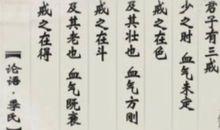 君子有三戒
少之时 血气未定
戒之在色
及其壮也 血气方刚
戒之在斗
及其老也 血气既衰
戒之在得
【论语·季氏】